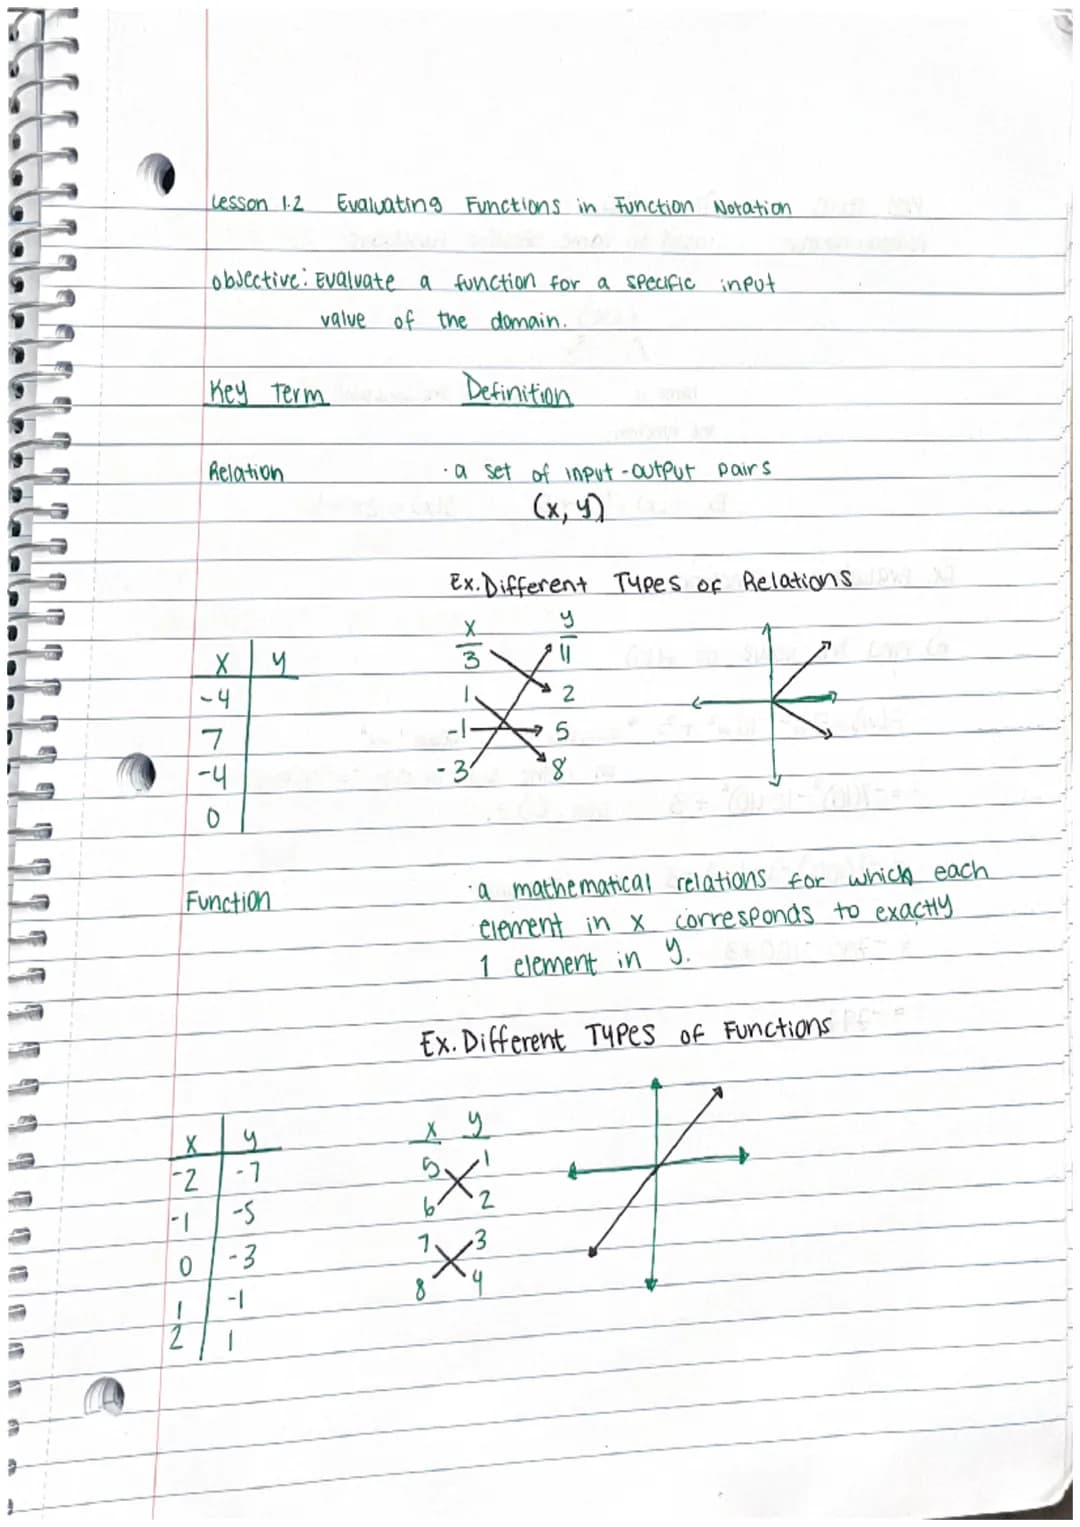 Lesson 1.2 Evaluating Functions in Function Notation
objective: Evaluate a function for a specific input
value of the domain.
Key Term Definition
Relation · a set of input-output pairs
(x, y)
Ex. Different Types of Relations
x y
-4
7
-4
0
x y
3 11
1 2
-1 5
-3 8
Function · a mathematical relations for which each
element in x corresponds to exactly
1 element in y.
Ex. Different Types of Functions
x y
-2 -7
-1 -5
0 -3
1 -1
2 1
x y
5 1
6 2
7 3
8 4